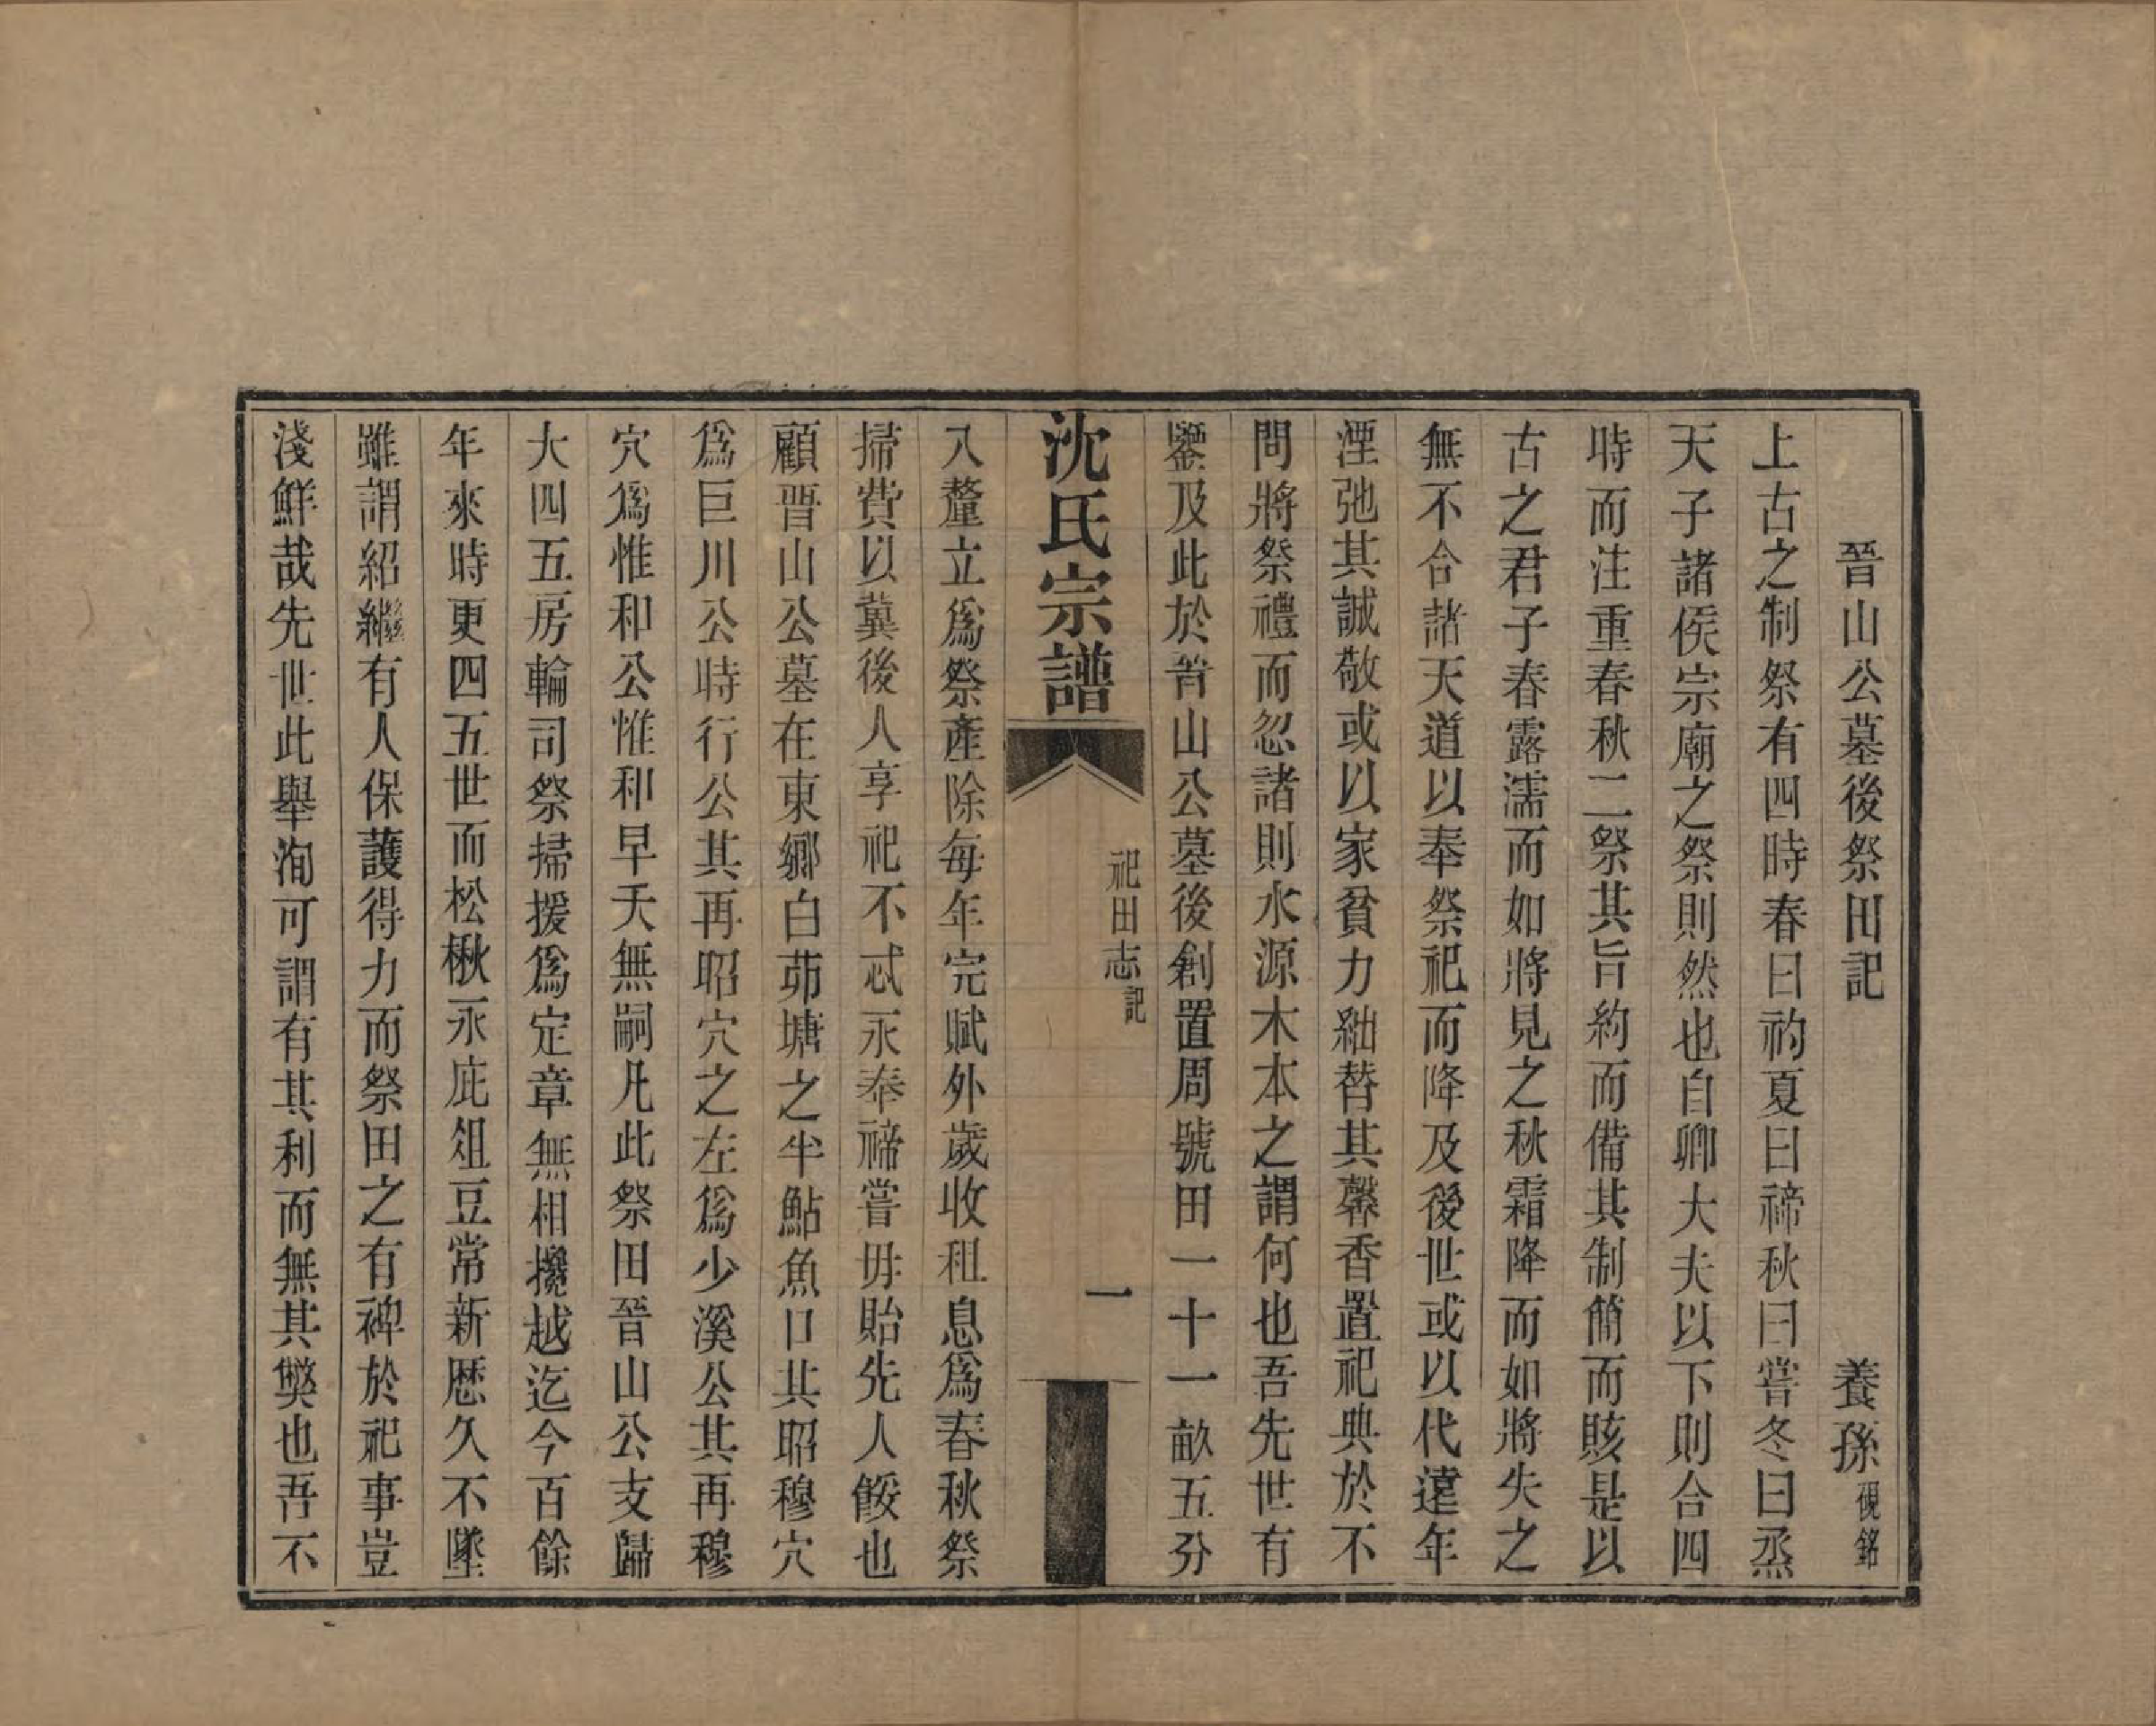 晉山公墓後祭田記　養孫硯銘
上古之制祭有四時春曰礿夏曰禘秋曰嘗冬曰烝
天子諸侯宗廟之祭則然也自卿大夫以下則合四
時而注重春秋二祭其旨約而備其制簡而賅是以
古之君子春露濡而如將見之秋霜降而如將失之
無不合諸天道以奉祭祀而降及後世或以代遠年
湮弛其誠敬或以家貧力絀替其馨香置祀典於不
問將祭禮而忽諸則水源木本之謂何也吾先世有
鑒及此於晉山公墓後創置周號田一十一畝五分
沈氏宗譜
祀田志記
一
入釐立爲祭產除每年完賦外歲收租息爲春秋祭
掃費以冀後人享祀不忒永奉禘嘗毋貽先人餒也
顧晉山公墓在東鄉白茆塘之半鮎魚口其昭穆穴
爲巨川公時行公其再昭穴之左爲少溪公其再穆
穴爲惟和公惟和早夭無嗣凡此祭田晉山公支歸
大四五房輪司祭掃援爲定章無相攙越迄今百餘
年來時更四五世而松楸永庇俎豆常新歷久不墜
雖謂紹繼有人保護得力而祭田之有裨於祀事豈
淺鮮哉先世此舉洵可謂有其利而無其獘也吾不